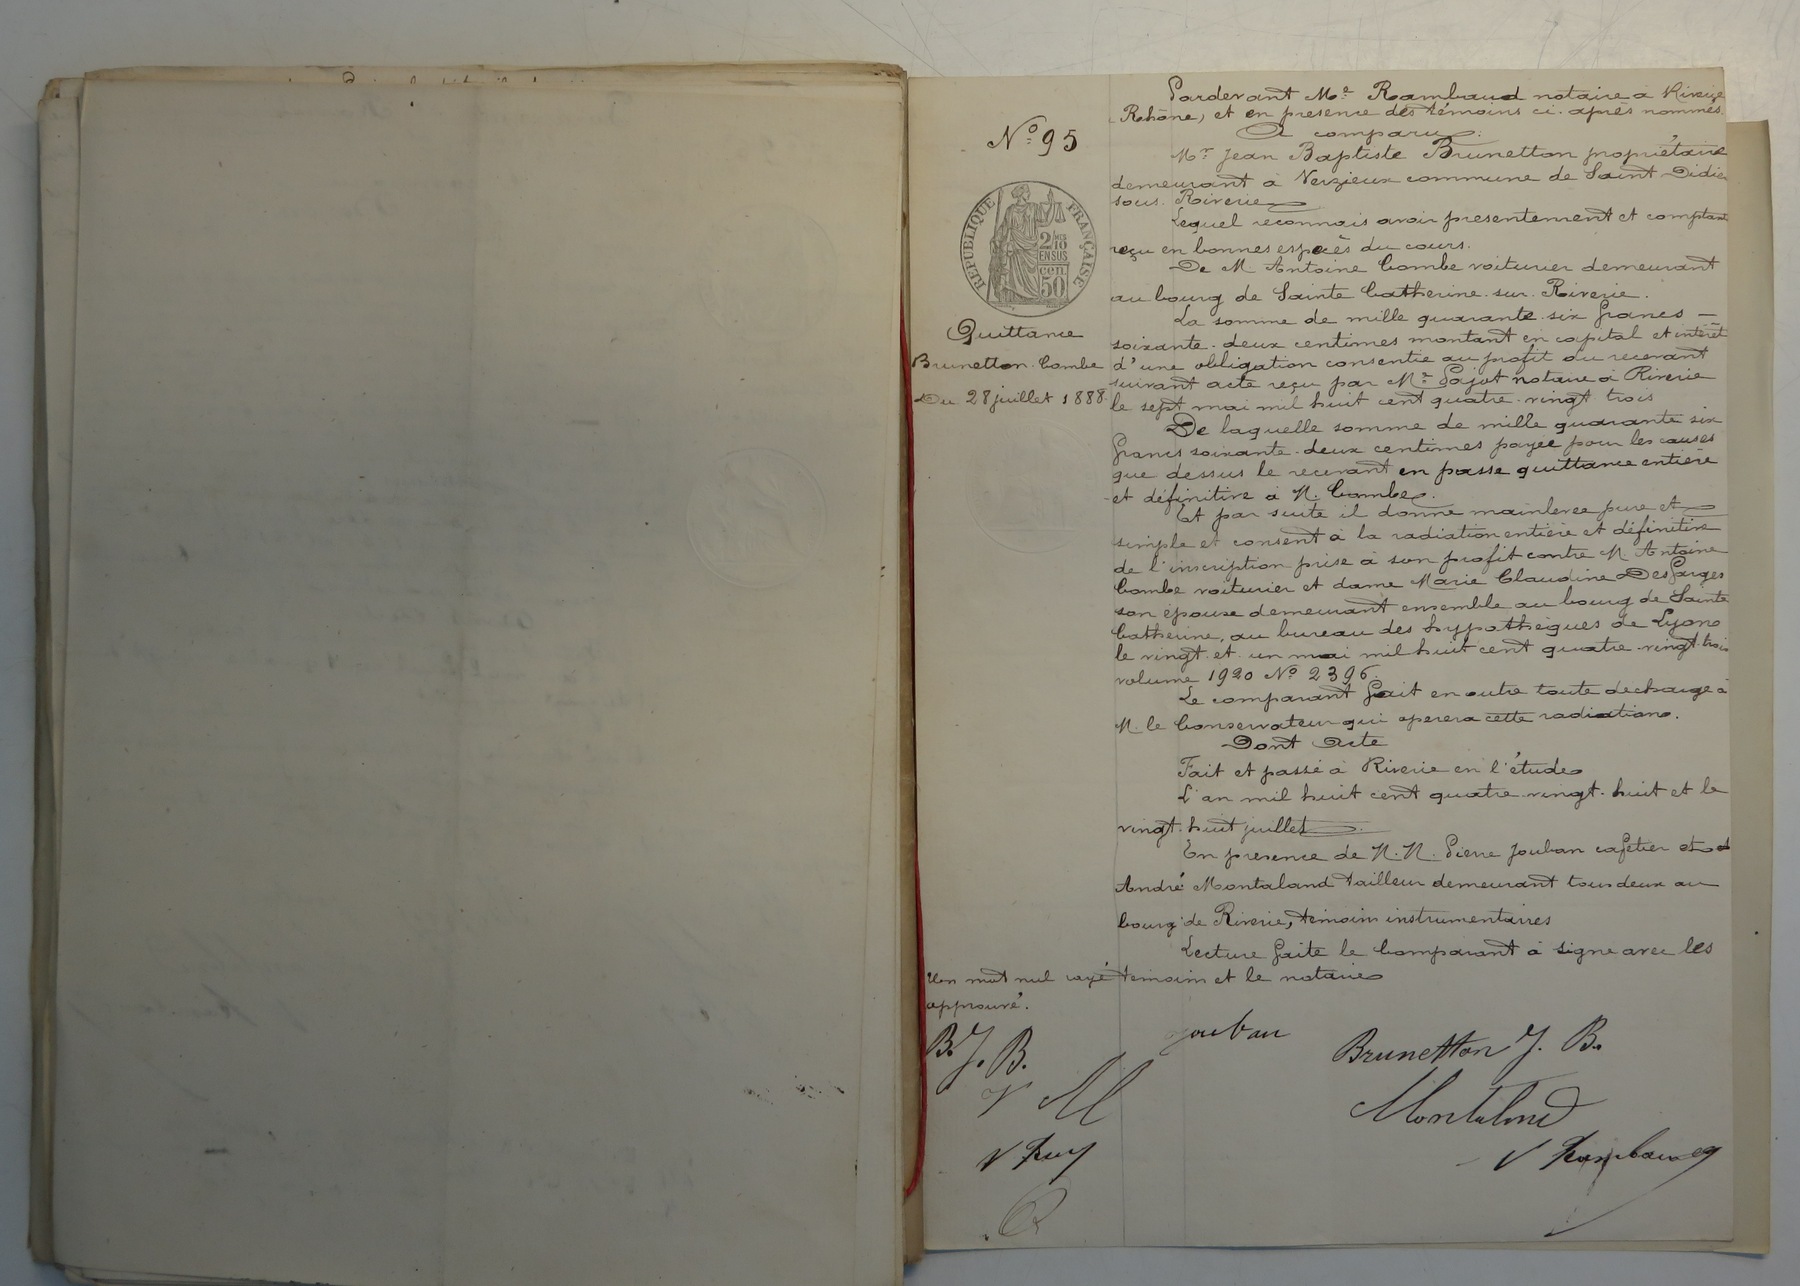 Pardevant Me Rambaud notaire à Riverie
(Rhône) et en presence des témoins ci-après nommés.
A comparu:
Mr Jean Baptiste Brunetton propriétaire
demeurant à Verzieux commune de Saint Didier
sous Riverie
Lequel reconnais avoir presentement et comptant
reçu en bonnes espèces du cours.
De M. Antoine Combe voiturier demeurant
au bourg de Sainte Catherine sur Riverie.
La somme de mille quarante six francs —
soixante-deux centimes montant en capital et intérêt
d'une obligation consentie au profit du recevant
suivant acte reçu par Me Pajot notaire à Riverie
le sept mai mil huit cent quatre-vingt trois
De laquelle somme de mille quarante six
francs soixante-deux centimes payée pour les causes
que dessus le recevant en passe quittance entière
et définitive à M. Combe.
Et par suite il donne mainlevee pure et
simple et consent à la radiation entière et définitive
de l'inscription prise à son profit contre M. Antoine
Combe voiturier et dame Marie Claudine DesFarges
son épouse demeurant ensemble au bourg de Sainte
Catherine, au bureau des hypothèques de Lyon
le vingt-et-un mai mil huit cent quatre-vingt-trois
volume 1920 No 2396.
Le comparant fait en outre toute decharge à
M. le Conservateur qui operera cette radiation.
Dont Acte
Fait et passé à Riverie en l'étude
L'an mil huit cent quatre-vingt-huit et le
vingt-huit juillet
En presence de M.M. Pierre Jouban cafetier et
André Montaland tailleur demeurant tous deux au
bourg de Riverie, témoins instrumentaires
Lecture faite le Comparant à signe avec les
temoins et le notaire
No 95
REPUBLIQUE FRANÇAISE
2/10
EN SUS
cen.
50
Quittance
Brunetton-Combe
Du 28 juillet 1888
Un mot nul rayé
approuvé.
B. J. B.
M
Jouban
Brunetton J. B.
Montaland
Rambaud